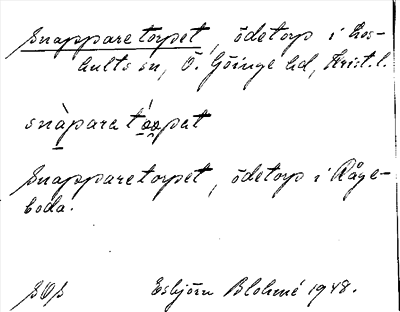 Snapparetorpet, ödetorp i Los-
hults sn, Ö. Göinge hd, Krist. l.
snàpara tóopat
Snapparetorpet, ödetorp i Råge-
boda.
SOS Esbjörn Blohmé 1948.